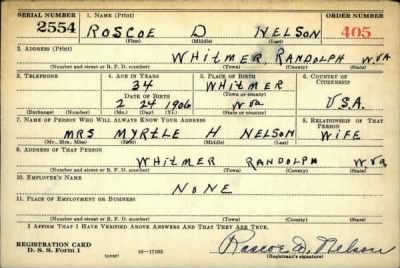 SERIAL NUMBER 1. NAME (Print) ORDER NUMBER
2554 ROSCOE D NELSON 405
(First) (Middle) (Last)
2. ADDRESS (Print)
WHITMER RANDOLPH W VA
(Number and street or R. F. D. number) (Town) (County) (State)
3. TELEPHONE 4. AGE IN YEARS 5. PLACE OF BIRTH 6. COUNTRY OF CITIZENSHIP
34 WHITMER
DATE OF BIRTH (Town or county)
2 24 1906 W va U.S.A.
(Exchange) (Number) (Mo.) (Day) (Yr.) (State or country)
7. NAME OF PERSON WHO WILL ALWAYS KNOW YOUR ADDRESS 8. RELATIONSHIP OF THAT PERSON
MRS MYRTLE H NELSON WIFE
(Mr., Mrs., Miss) (First) (Middle) (Last)
9. ADDRESS OF THAT PERSON
WHITMER RANDOLPH W va
(Number and street or R. F. D. number) (Town) (County) (State)
10. EMPLOYER'S NAME
NONE
11. PLACE OF EMPLOYMENT OR BUSINESS
(Number and street or R. F. D. number) (Town) (County) (State)
I AFFIRM THAT I HAVE VERIFIED ABOVE ANSWERS AND THAT THEY ARE TRUE.
REGISTRATION CARD Roscoe D. Nelson
D. S. S. Form 1 (over) 16—17105 (Registrant's signature)